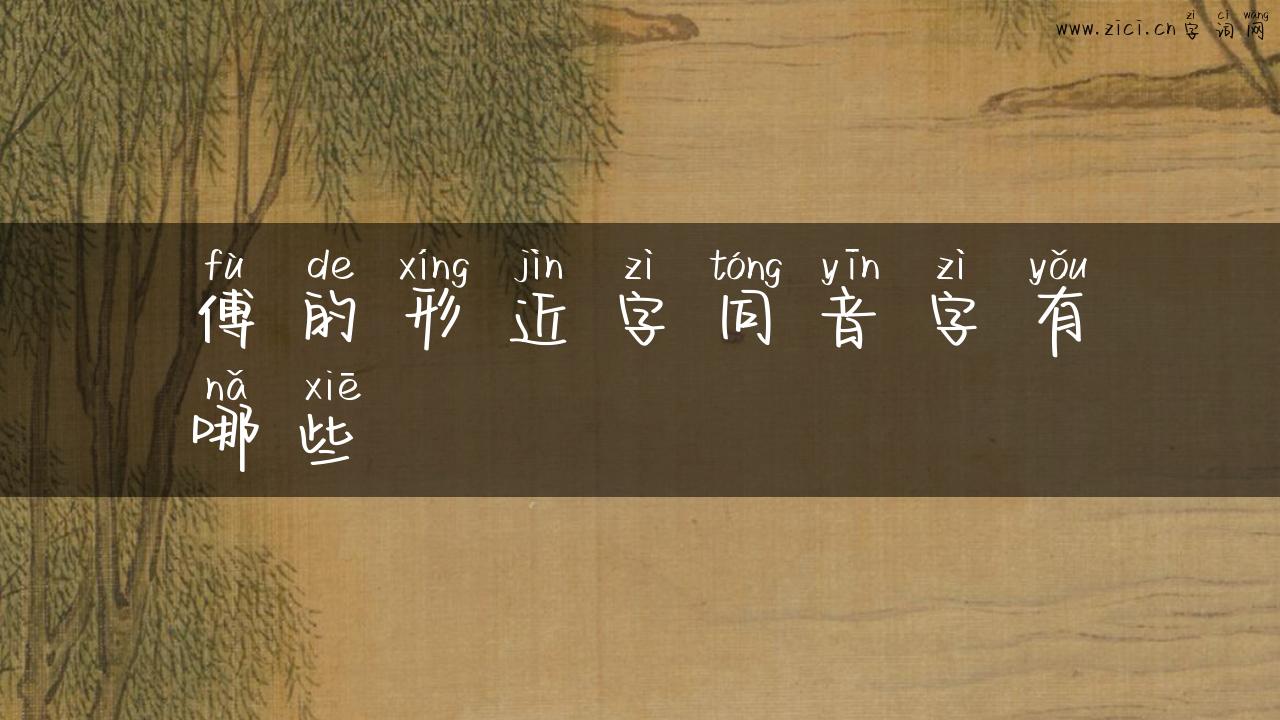 zì cí wǎng
www.zici.cn字词网
fù de xíng jìn zì tóng yīn zì yǒu
傅的形近字同音字有
nǎ xiē
哪些